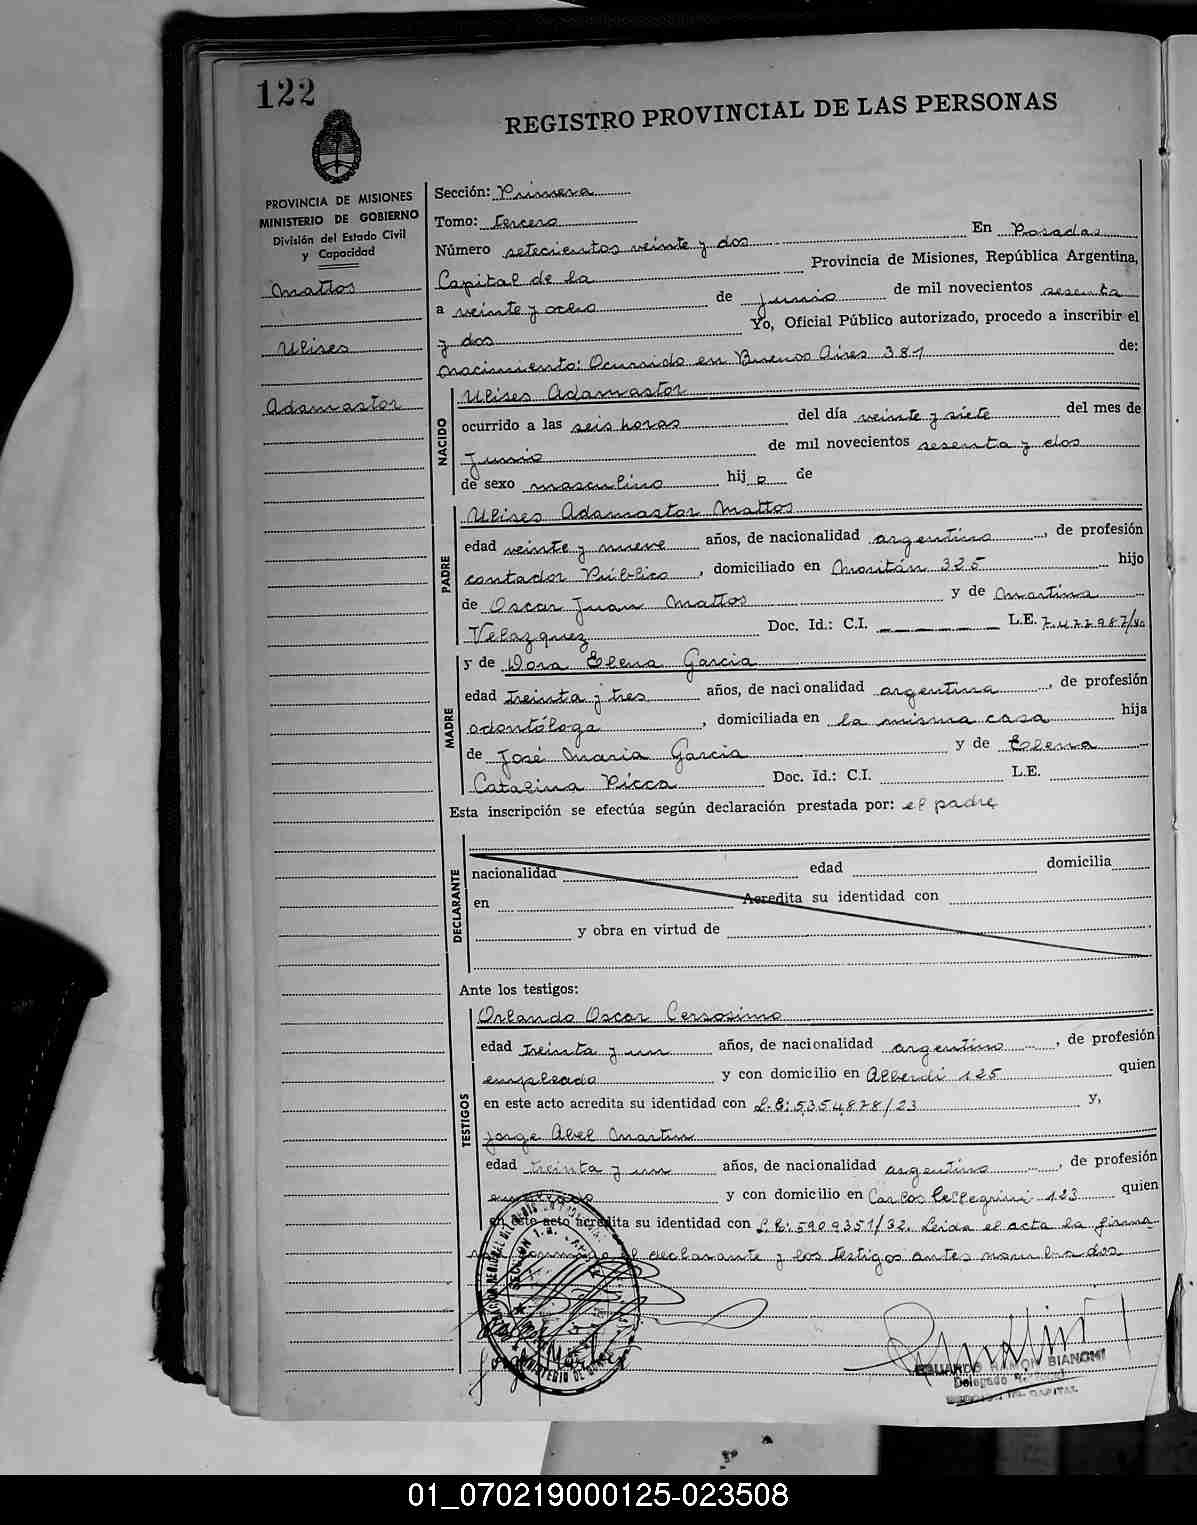 122
REGISTRO PROVINCIAL DE LAS PERSONAS
PROVINCIA DE MISIONES
MINISTERIO DE GOBIERNO
División del Estado Civil
y Capacidad
Mattos
Ulises
Adamastor
Sección: Primera
Tomo: tercero
Número setecientos veinte y dos En Posadas
Capital de la Provincia de Misiones, República Argentina,
a veinte y ocho de junio de mil novecientos sesenta
y dos Yo, Oficial Público autorizado, procedo a inscribir el
nacimiento: Ocurrido en Buenos Aires 381 de:
NACIDO
Ulises Adamastor
ocurrido a las seis horas del día veinte y siete del mes de
junio de mil novecientos sesenta y dos
de sexo masculino hijo de
PADRE
Ulises Adamastor Mattos
edad veinte y nueve años, de nacionalidad argentino, de profesión
contador Público, domiciliado en 325 hijo
de Oscar Juan Mattos y de Martina
Velazquez Doc. Id.: C.I. L.E. 7.477987/
MADRE
y de Dora Elena Garcia
edad treinta y tres años, de nacionalidad argentina, de profesión
odontóloga, domiciliada en la misma casa hija
de José Maria Garcia y de Elena
Catalina Picca Doc. Id.: C.I. L.E.
Esta inscripción se efectúa según declaración prestada por: el padre
DECLARANTE
nacionalidad edad domicilia
en Acredita su identidad con
y obra en virtud de
Ante los testigos:
TESTIGOS
Orlando Oscar Cersosimo
edad treinta y un años, de nacionalidad argentino, de profesión
empleado y con domicilio en Alberdi 125 quien
en este acto acredita su identidad con L.E: 5.354.878/23 y,
Jorge Abel Martin
edad treinta y un años, de nacionalidad argentino, de profesión
y con domicilio en Carlos Pellegrini 123 quien
en este acto acredita su identidad con L.E: 5909351/32. Leida el acta la firma
el declarante y los testigos antes nombrados
EDUARDO RAMON BIANCHI
Delegado
CAPITAL
01_070219000125-023508